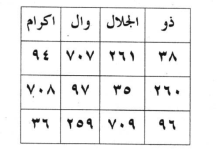 ذو الجلال وال اكرام
٣٨ ٢٦١ ٧٠٧ ٩٤
٢٦٠ ٣٥ ٩٧ ٧٠٨
٩٦ ٧٠٩ ٢٥٩ ٣٦